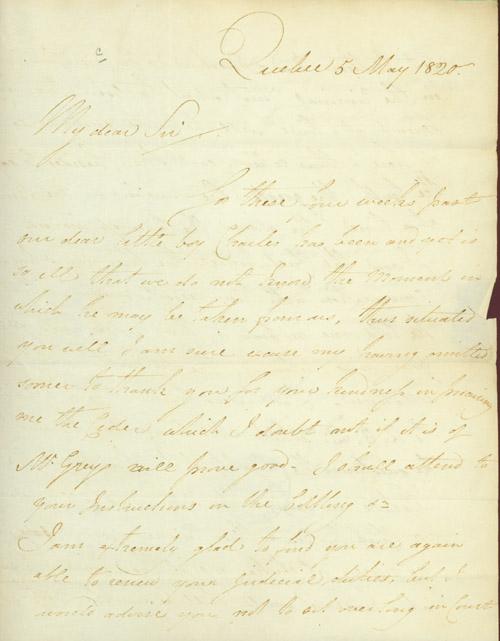 Quebec 5 May 1820.
My dear Sir
For these four weeks past
our dear little boy Charles has been and yet is
so ill that we do not know the moment in
which he may be taken from us, thus situated
you will I am sure excuse my having omitted
sooner to thank you for your kindness in procuring
me the Cyder which I doubt not if it is of
Mr Grey's will prove good. I shall attend to
your Instructions in the Bottling &c
I am extremely glad to find you are again
able to renew your Judicial duties, but I
would advise you not to sit over long in Court